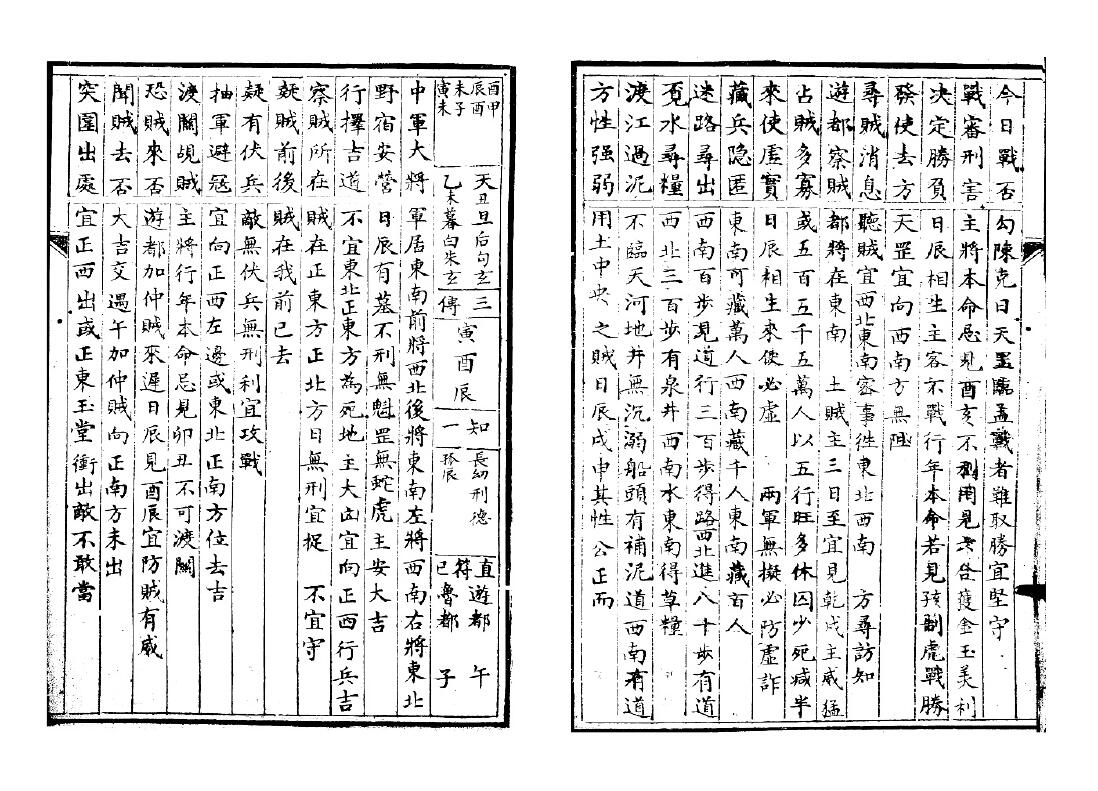 今日戰否 勾陳克日天罡臨孟戰者難取勝宜堅守
戰審刑害 主將本命忌見酉亥不利用見金玉美利
决定勝負 日辰相生主客不戰行年本命若見孩虎戰勝
發使去方 天罡宜向西南方無阻
尋賊消息 聽賊宜西北東南審事徃東北西南 方尋訪知
遊都察賊 都將在東南 土賊主三日至宜見乾戌主威猛
占賊多寡 或五百五千五萬人以五行旺多休囚少死减半
來使虛實 日辰相生來使必虛 兩軍無擬必防虛詐
藏兵隱匿 東南可藏萬人西南藏千人東南藏百人
迷路尋出 西南百步見道行三百步得路西北進八十步有道
覓水尋糧 西北三百步有泉井西南水東南得草糧
渡江過泥 不臨天河地井無沉溺船頭有補泥道西南有道
方性强弱 用土中央之賊日辰戌申其性公正而
酉甲
辰酉
未子
寅未
天丑旦后勾玄
乙未暮白朱玄
三傳
寅酉辰
知一
長幼刑德
直符 巳
遊都 午
魯都 子
中軍大將 軍居東南前將西北後將東南左將西南右將東北
野宿安營 日辰有墓不刑無魁罡無蛇虎主安大吉
行擇吉道 不宜東北正東方為死地主大凶宜向正西行兵吉
察賊所在 賊在正東方正北方日無刑宜捉 不宜守
疑賊前後 賊在我前已去
疑有伏兵 敵無伏兵無刑利宜攻戰
抽軍避寇 宜向正西左邊或東北正南方位去吉
渡關覘賊 主將行年本命忌見卯丑不可渡關
恐賊來否 遊都加仲賊來遲日辰見酉辰宜防賊有威
聞賊去否 大吉交遇午加仲賊向正南方未出
突圍出處 宜正西出或正東玉堂衝出敵不敢當